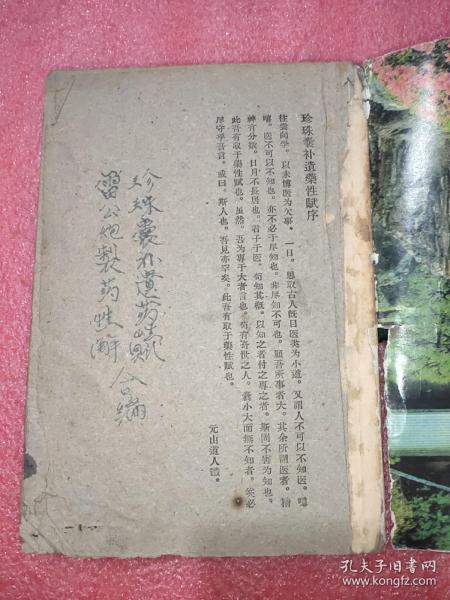 珍珠囊补遗藥性賦序
往崇向学。以未博医为欠事。一日。思取古人既曰医类为小道。又謂人不可以不知医。噫
嘻。医不可以不知也。亦不必于尽知也。非尽知不可也。顾吾所事者大。其余所謂医者。精
神有分焉。日月不长居也。君子于医。苟知其概。以知之者付之專之者。斯固不害为知也。
此吾有取于藥性賦也。虽然。吾为專于大者言也。苟有寄世之人。囊小大而無不知者。奚必
尽守乎吾言。或曰。斯人也。吾見亦罕矣。此吾有取于藥性賦也。
元山道人識。
珍珠囊补遺药性赋
雷公炮製药性解
合编
— 1 —
孔夫子旧书网
www.kongfz.com